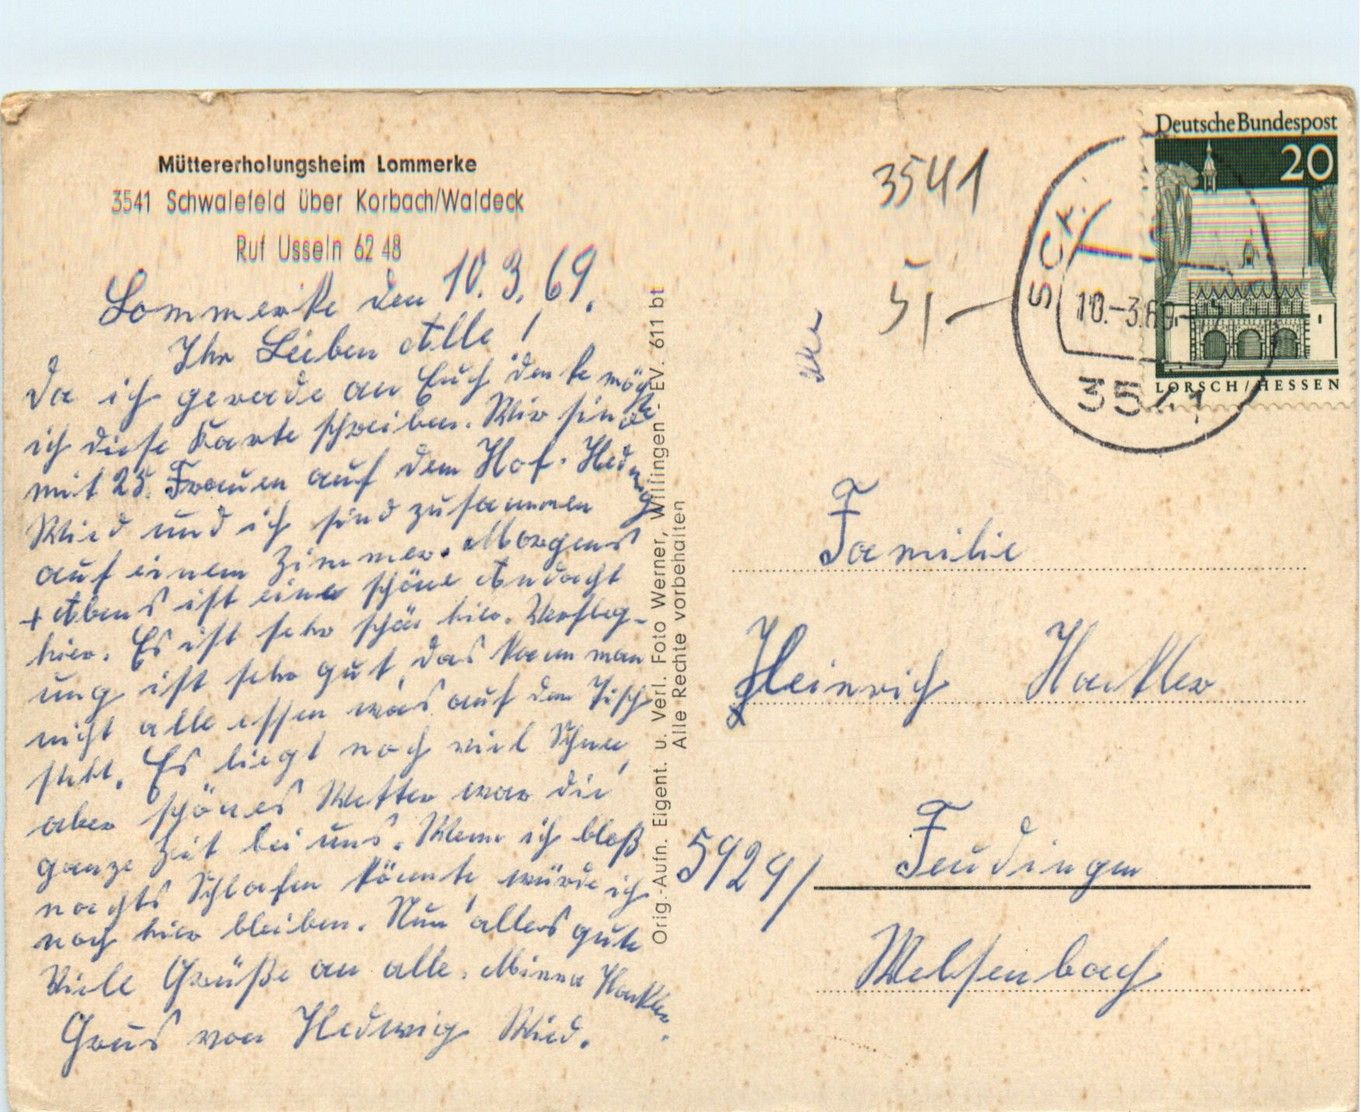 Müttererholungsheim Lommerke
3541 Schwalefeld über Korbach/Waldeck
Ruf Usseln 62 48
Lommerke den 10.3.69.
Ihr Lieben Alle!
Da ich gerade an Euch denke möchte
ich diese Karte schreiben. Wir sind
mit 25. Frauen auf dem Hof. Hedwig
Wied und ich sind zusammen
auf einem Zimmer. Morgens
+ Abens ist eine schöne Andacht
hier. Es ist sehr schön hier. Verfleg-
ung ist sehr gut, das kann man
nicht alle essen was auf den Tisch
steht. Es liegt noch viel Schnee,
aber schönes Wetter war die
ganze Zeit bei uns. Wenn ich bloß
nachts Schlafen könnte, würde ich
noch hier bleiben. Nun alles gute
Viele Grüße an alle. Minna Hackler.
Grus von Hedwig Wied.
Orig.-Aufn. Eigent. u. Verl. Foto Werner, Willingen - EV. 611 bt
Alle Rechte vorbehalten
3541
5,-
Deutsche Bundespost
20
LORSCH/HESSEN
10.-3.69.-
3541
Familie
Heinrich Hackler
5929/ Feudingen
Welfenbach